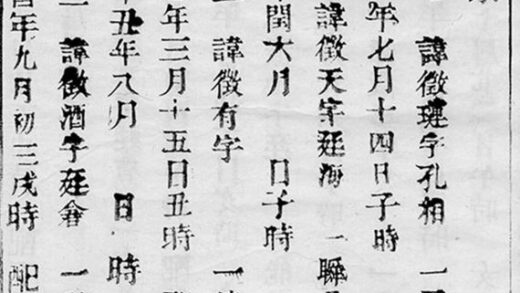 諱徵璉字孔相 一
年七月十四日子時
諱徵天字廷海 一
閏六月 日子時
諱徵有字 一
年三月十五日丑時
丑年八月 日 時
諱徵酒字廷會 一
年九月初三戌時 配